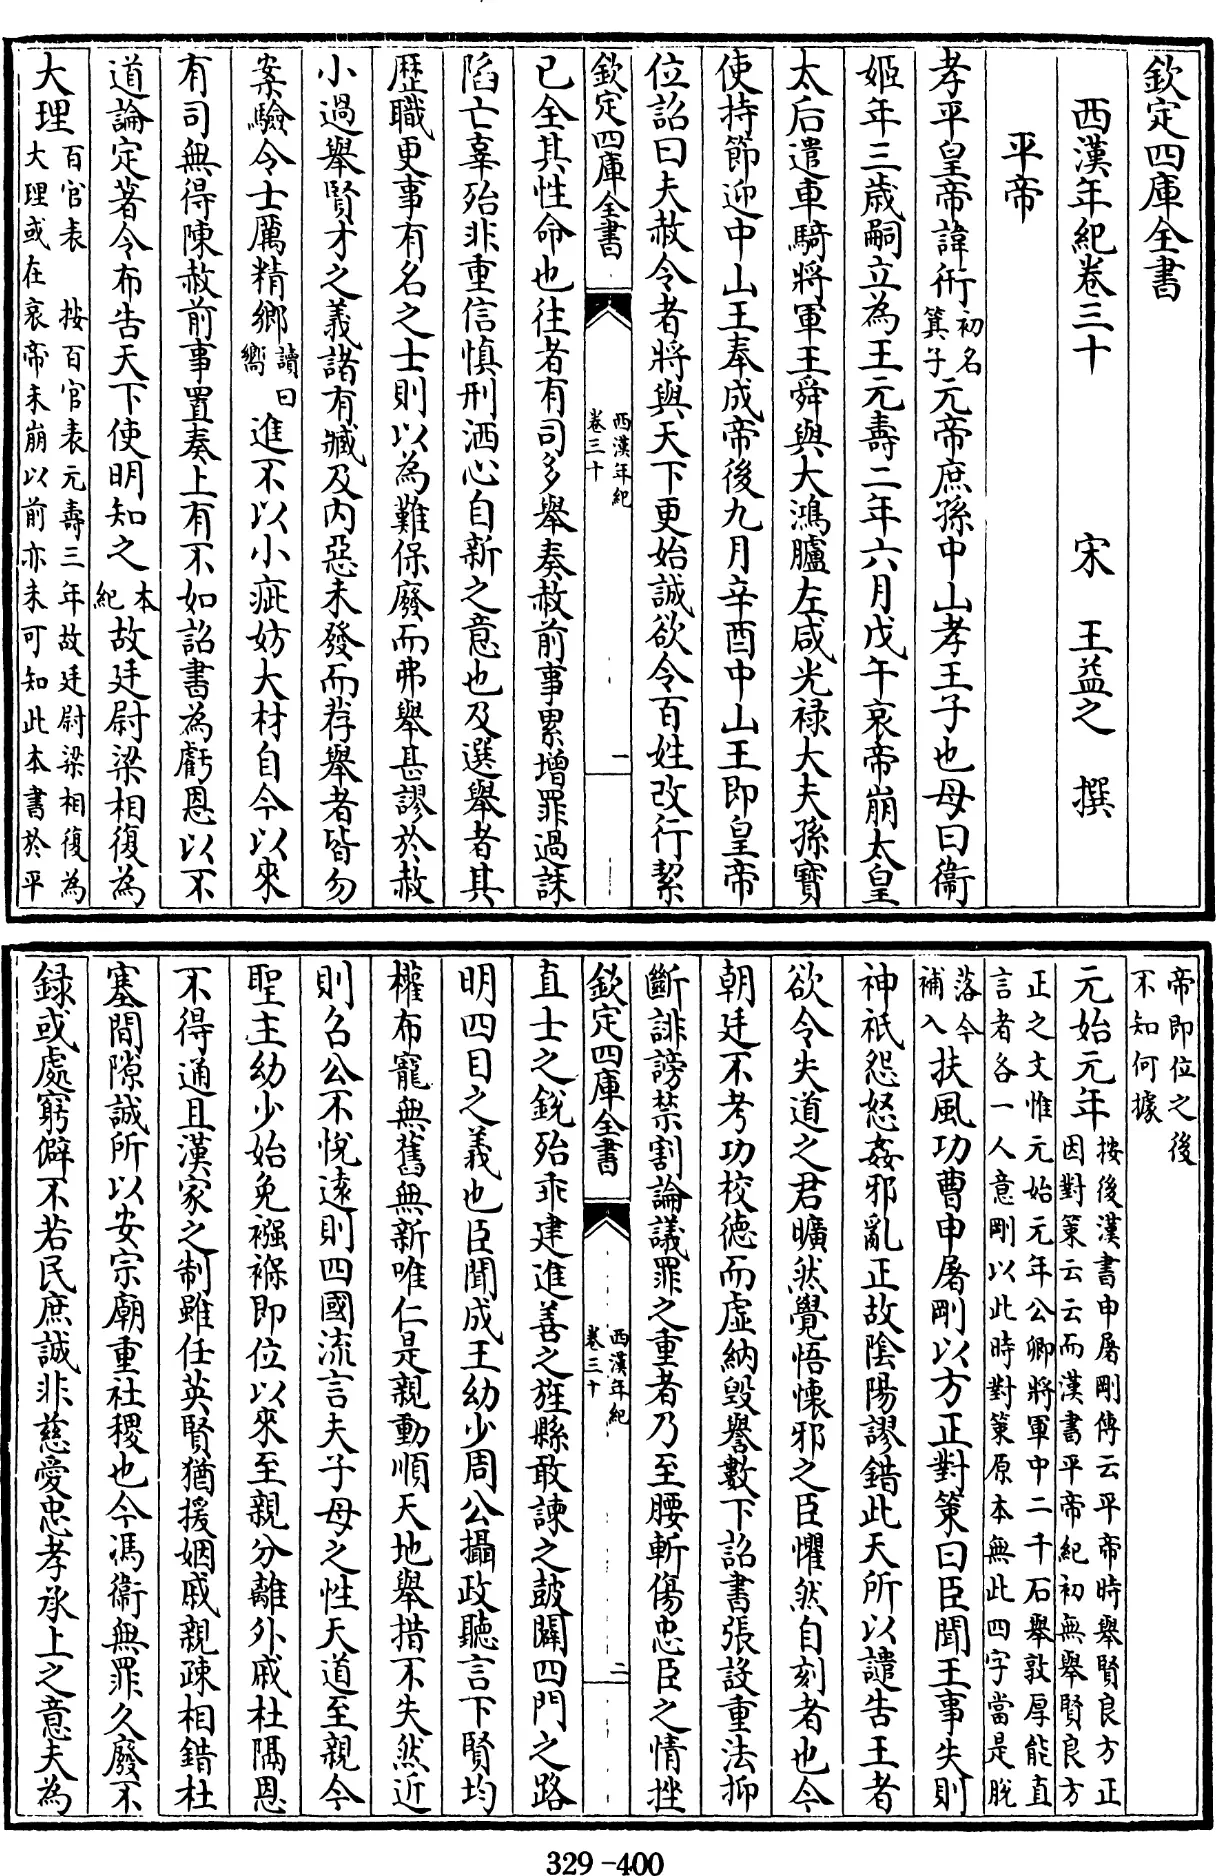 欽定四庫全書
西漢年紀卷三十
宋　王益之　撰
平帝
孝平皇帝諱衎初名箕子元帝庶孫中山孝王子也母曰衞
姬年三歳嗣立為王元壽二年六月戊午哀帝崩太皇
太后遣車騎將軍王舜與大鴻臚左咸光禄大夫孫寳
使持節迎中山王奉成帝後九月辛酉中山王即皇帝
位詔曰夫赦令者將與天下更始誠欲令百姓改行絜
欽定四庫全書
西漢年紀
卷三十
一
已全其性命也往者有司多舉奏赦前事累增罪過誅
陷亡辜殆非重信慎刑洒心自新之意也及選舉者其
歴職更事有名之士則以為難保廢而弗舉甚謬於赦
小過舉賢才之義諸有臧及内惡未發而荐舉者皆勿
案驗令士厲精鄉讀曰嚮進不以小疵妨大材自今以來
有司無得陳赦前事置奏上有不如詔書為虧恩以不
道論定著令布告天下使明知之本紀故廷尉梁相復為
大理百官表　按百官表元壽三年故廷尉梁相復為
大理或在哀帝未崩以前亦未可知此本書於平
帝即位之後
不知何據
元始元年按後漢書申屠剛傳云平帝時舉賢良方正
因對策云云而漢書平帝紀初無舉賢良方
正之文惟元始元年公卿將軍中二千石舉敦厚能直
言者各一人意剛以此時對策原本無此四字當是脱
落今
補入扶風功曹申屠剛以方正對策曰臣聞王事失則
神祇怨怒姦邪亂正故陰陽謬錯此天所以譴告王者
欲令失道之君曠然覺悟懐邪之臣懼然自刻者也今
朝廷不考功校德而虛納毁譽數下詔書張設重法抑
斷誹謗禁割論議罪之重者乃至腰斬傷忠臣之情挫
欽定四庫全書
西漢年紀
卷三十
二
直士之鋭殆乖建進善之旌縣敢諫之鼓闢四門之路
明四目之義也臣聞成王幼少周公攝政聽言下賢均
權布寵無舊無新唯仁是親動順天地舉措不失然近
則召公不悦遠則四國流言夫子母之性天道至親今
聖主幼少始免襁褓即位以來至親分離外戚杜隔恩
不得通且漢家之制雖任英賢猶援姻戚親疎相錯杜
塞間隙誠所以安宗廟重社稷也今馮衞無罪久廢不
録或處窮僻不若民庶誠非慈愛忠孝承上之意夫為
329-400